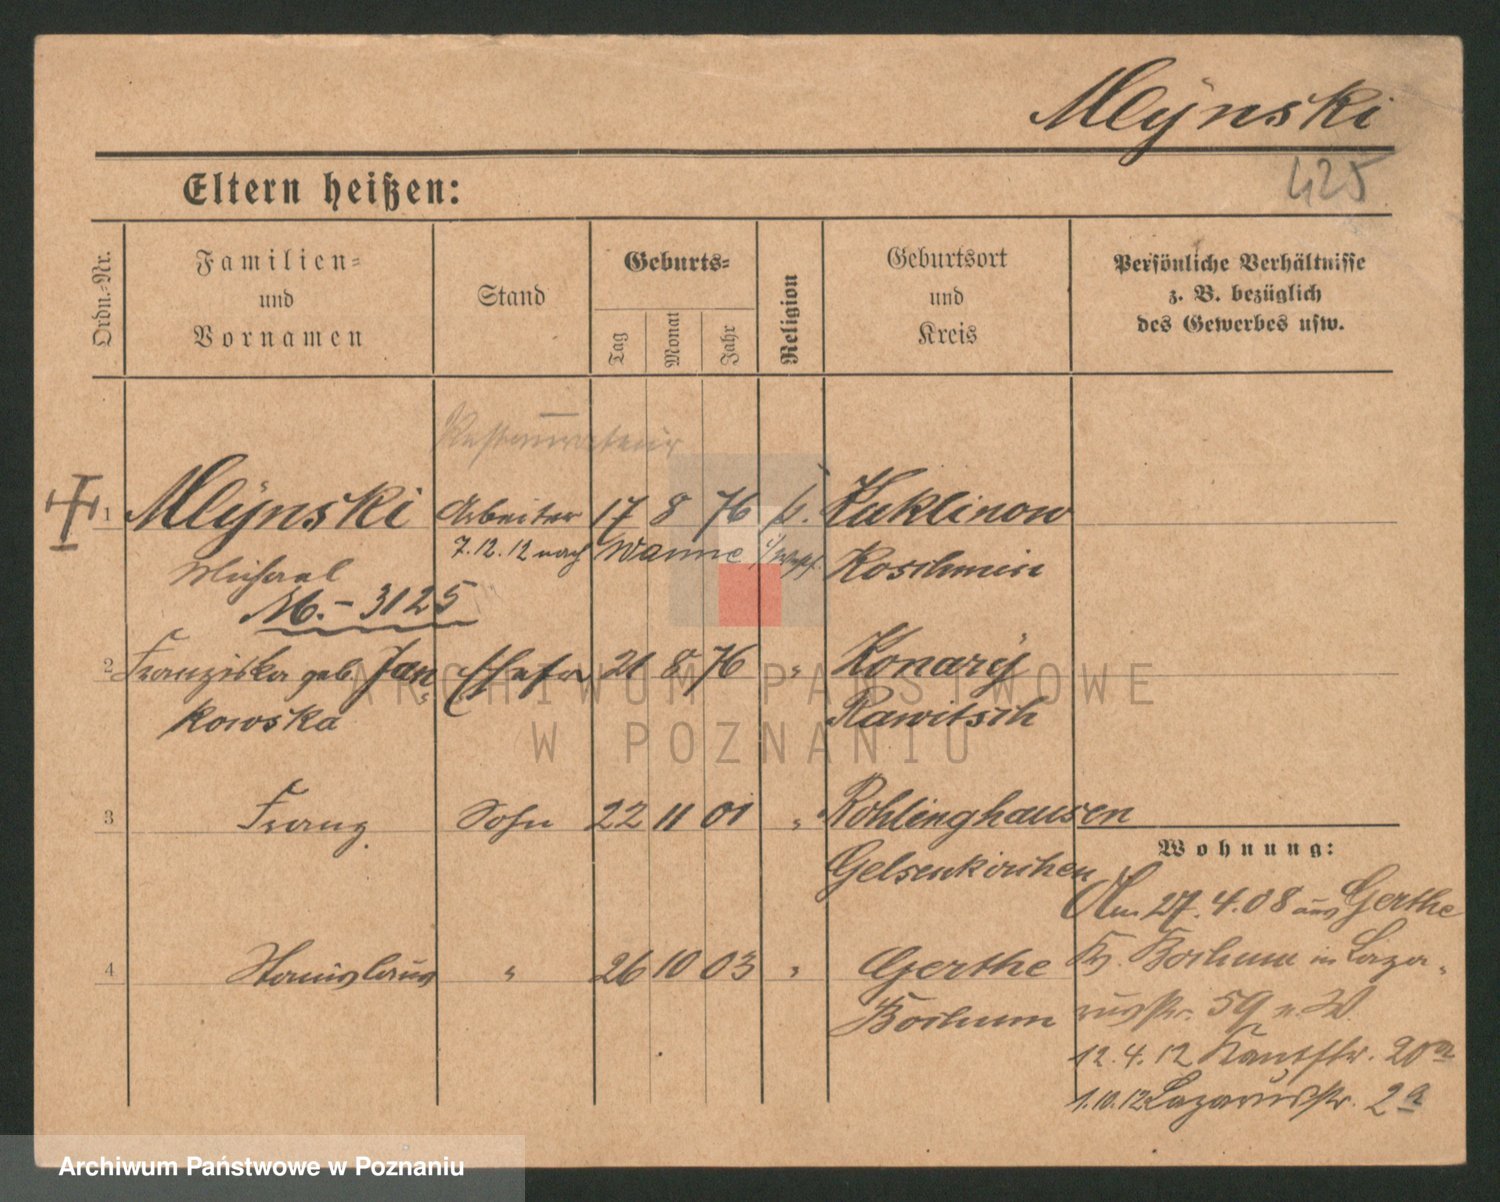 Mlÿnski
425
Eltern heißen:
Ordn.-Nr.
Familien-
und
Vornamen
Stand
Geburts-
Tag
Monat
Jahr
Religion
Geburtsort
und
Kreis
Persönliche Verhältnisse
z. B. bezüglich
des Gewerbes usw.
Restaurateur
1 Mlÿnski Arbeiter 17 8 76 k. Kuklinow
7.12.12 nach Wanne i/Westf.
Michael Koschmin
M.- 3125
2 Franziska geb. Jan- Ehefr 21 8 76 " Konarÿ
kowska Rawitsch
3 Franz Sohn 22 11 01 " Rohlinghausen
Gelsenkirchen
Wohnung:
Am 27.4.08 aus Gerthe
4 Stanislaus " 26 10 03 " Gerthe
Kr. Bochum in Laza-
Bochum
russtr. 59 v. W.
12.4.12 Kantstr. 20a
1.10.12 Lazarusstr. 2a
ARCHIWUM PAŃSTWOWE
W POZNANIU
Archiwum Państwowe w Poznaniu